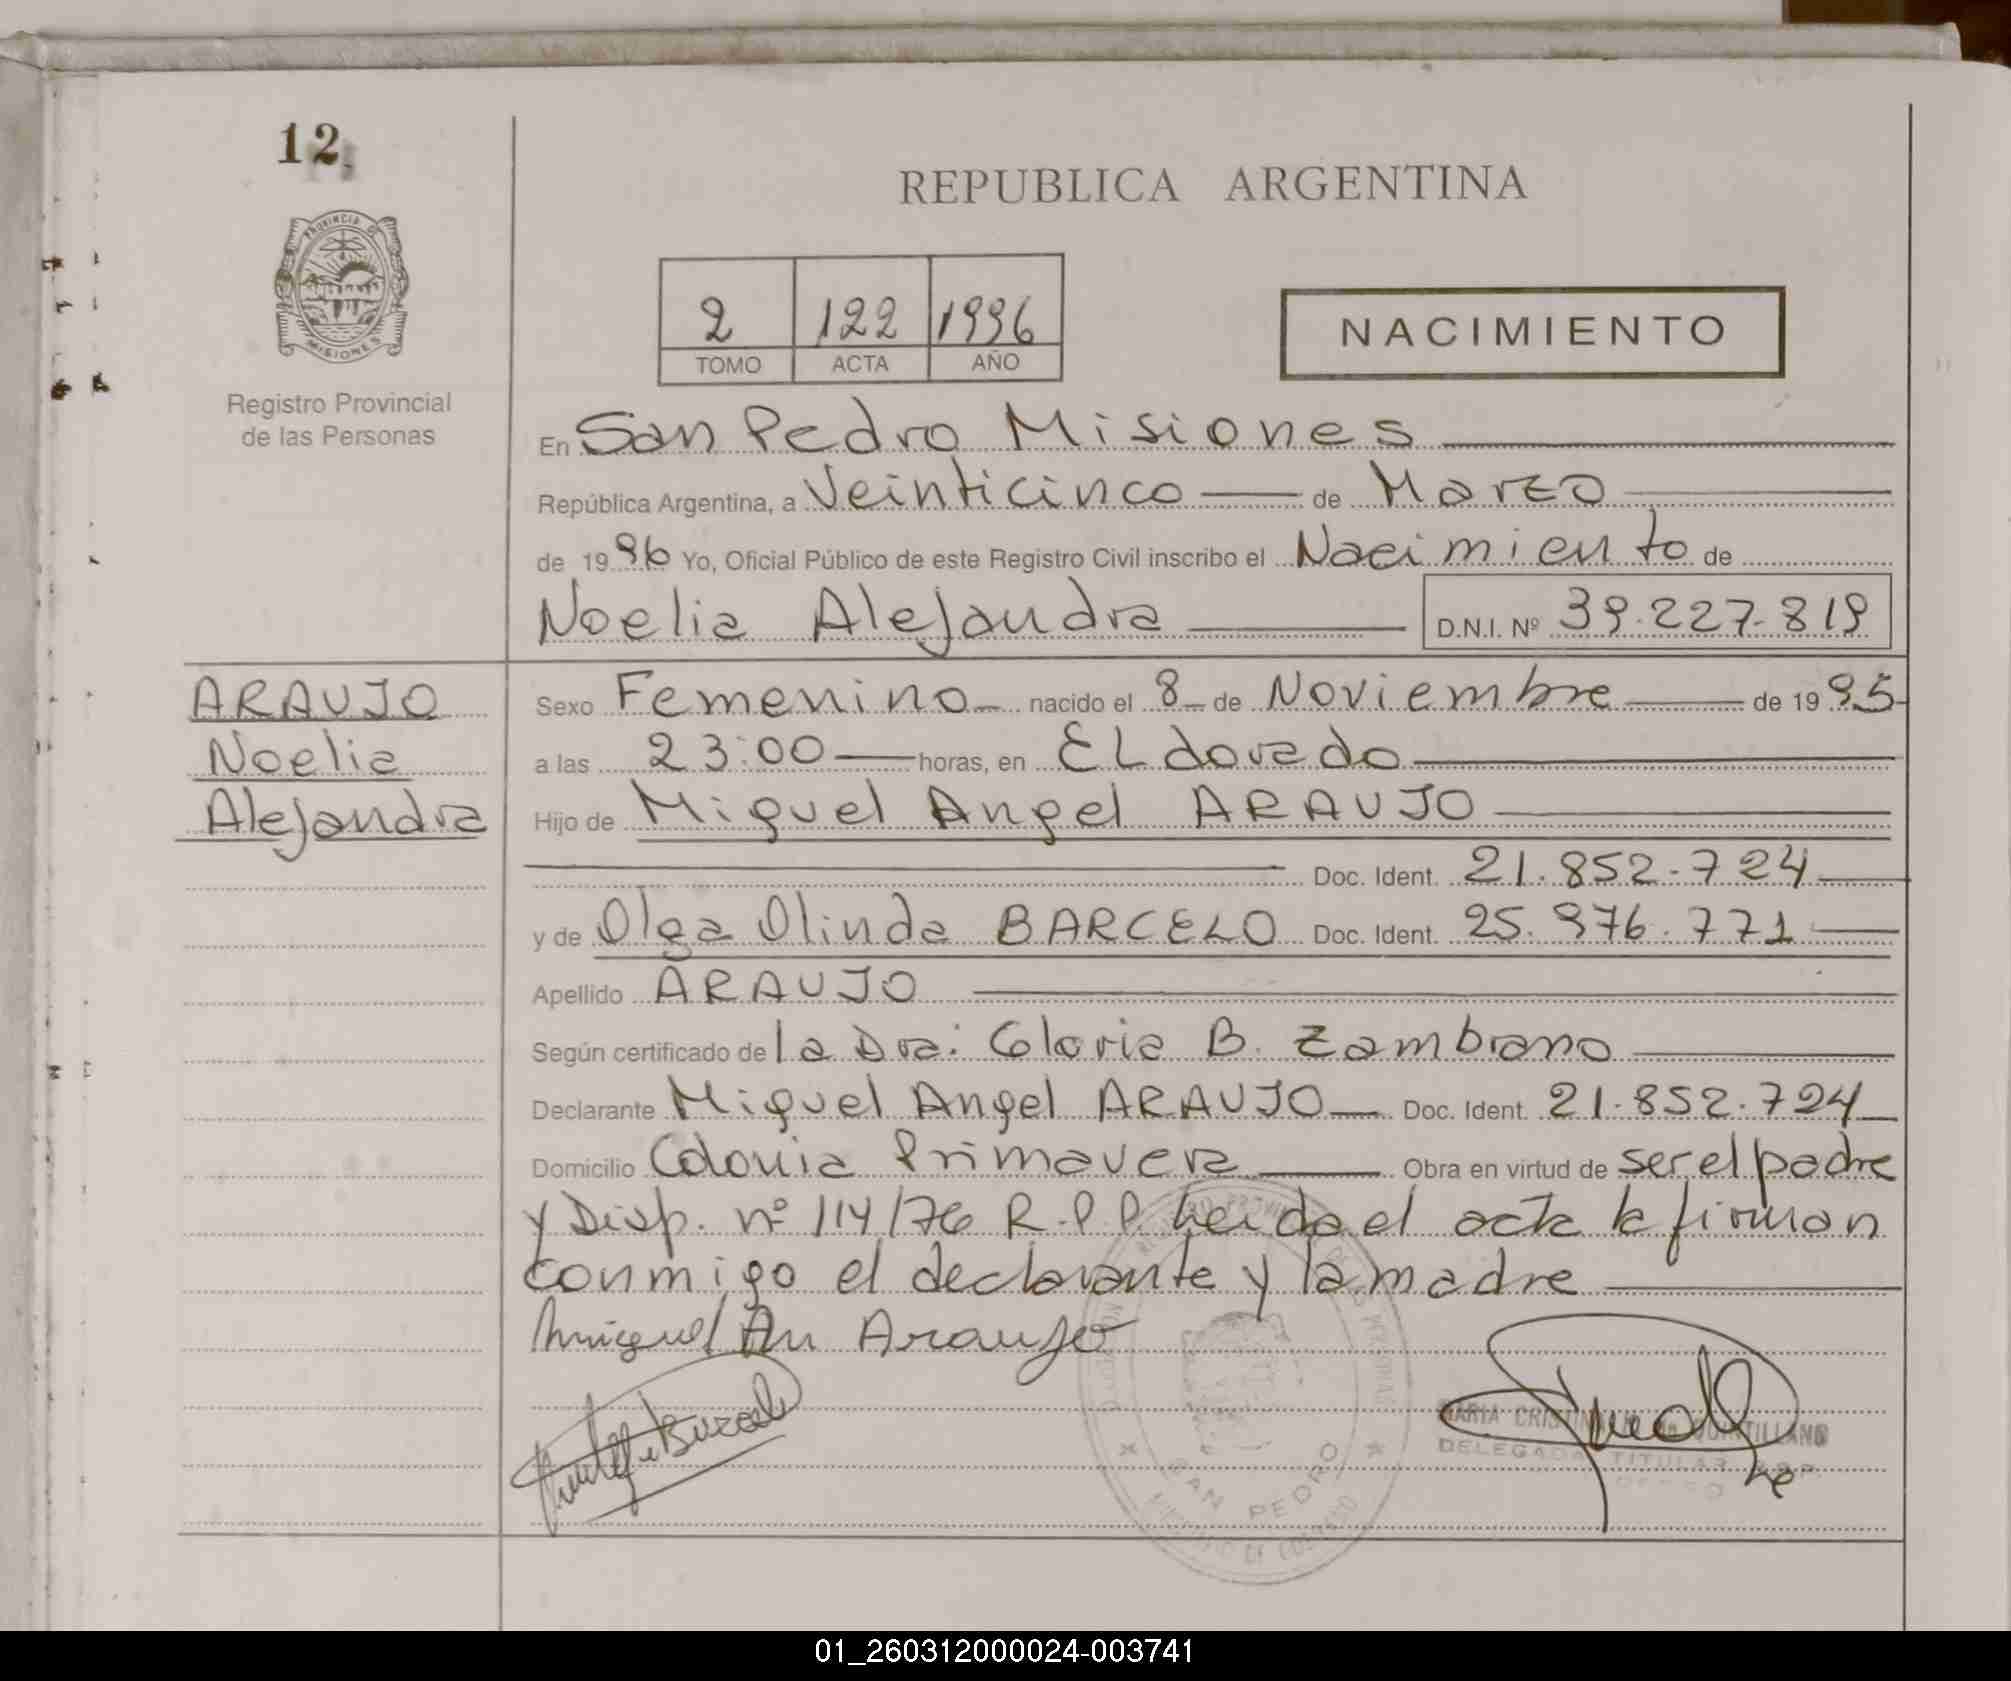 12
REPUBLICA ARGENTINA
PROVINCIA D
MISIONES
Registro Provincial
de las Personas
2 122 1996
TOMO ACTA AÑO
NACIMIENTO
En San Pedro Misiones
República Argentina, a Veinticinco de Marzo
de 1996 Yo, Oficial Público de este Registro Civil inscribo el Nacimiento de
Noelia Alejandra D.N.I. Nº 39.227.819
ARAUJO
Noelia
Alejandra
Sexo Femenino nacido el 8 de Noviembre de 1995
a las 23:00 horas, en ELdorado
Hijo de Miguel Angel ARAUJO
Doc. Ident. 21.852.724
y de Olga Olinda BARCELO Doc. Ident. 25.976.771
Apellido ARAUJO
Según certificado de la Dra: Gloria B. Zambrano
Declarante Miguel Angel ARAUJO Doc. Ident. 21.852.724
Domicilio Colonia Primavera Obra en virtud de ser el padre
y Disp. nº 114/76 R.P.P. Leida el acta la firman
conmigo el declarante y la madre
Miguel An Araujo
MARIA CRISTINA QUINTILLANO
DELEGADA TITULAR
SAN PEDRO
01_260312000024-003741